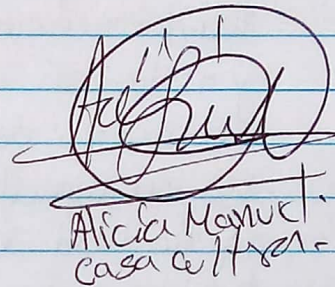 Alicia Manuel.
Casa cultura.